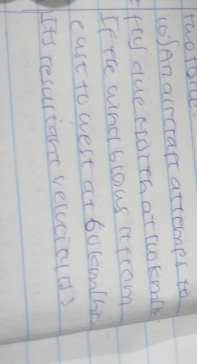 two force.
10) An aircraft attemps to
fly due North at 100km/h
If the wind blows it from
east to west at 60km/hr
Its resultant velocity is)